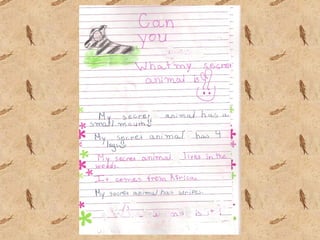 Can
you
What my secret
animal is?
My secret animal has a
small mouth
My secret animal has 4
legs
My secret animal lives in the
weeds.
It comes from Africa
My secret animal has stripes